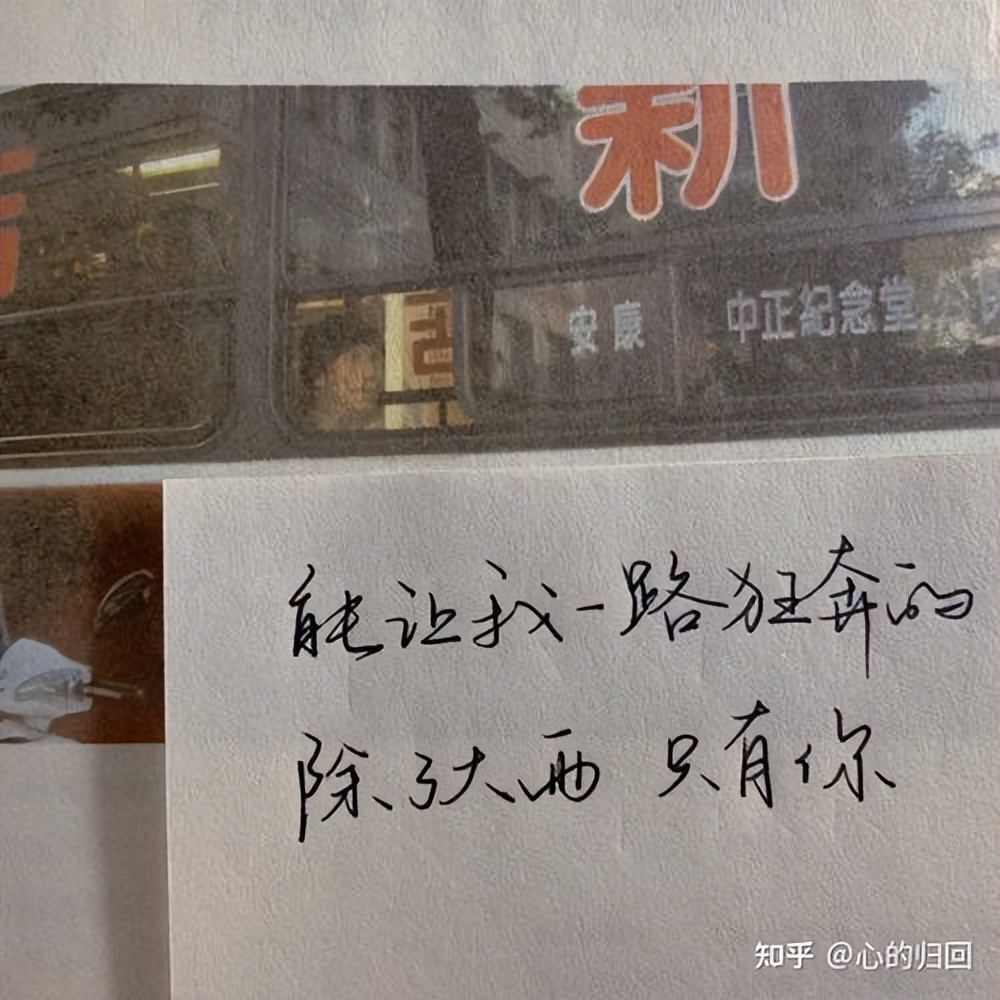 新
安康 中正紀念堂
能让我一路狂奔的
除了大雨 只有你
知乎 @心的归回